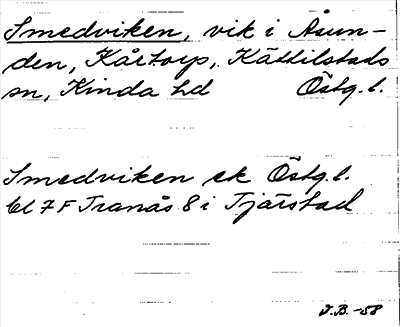 Smedviken, vik i Åsun-
den, Kårtorp, Kättilstads
sn, Kinda hd Östg. l.
Smedviken ek Östg. l.
bl 7 F Tranås 8 i Tjärstad
J.B.-58